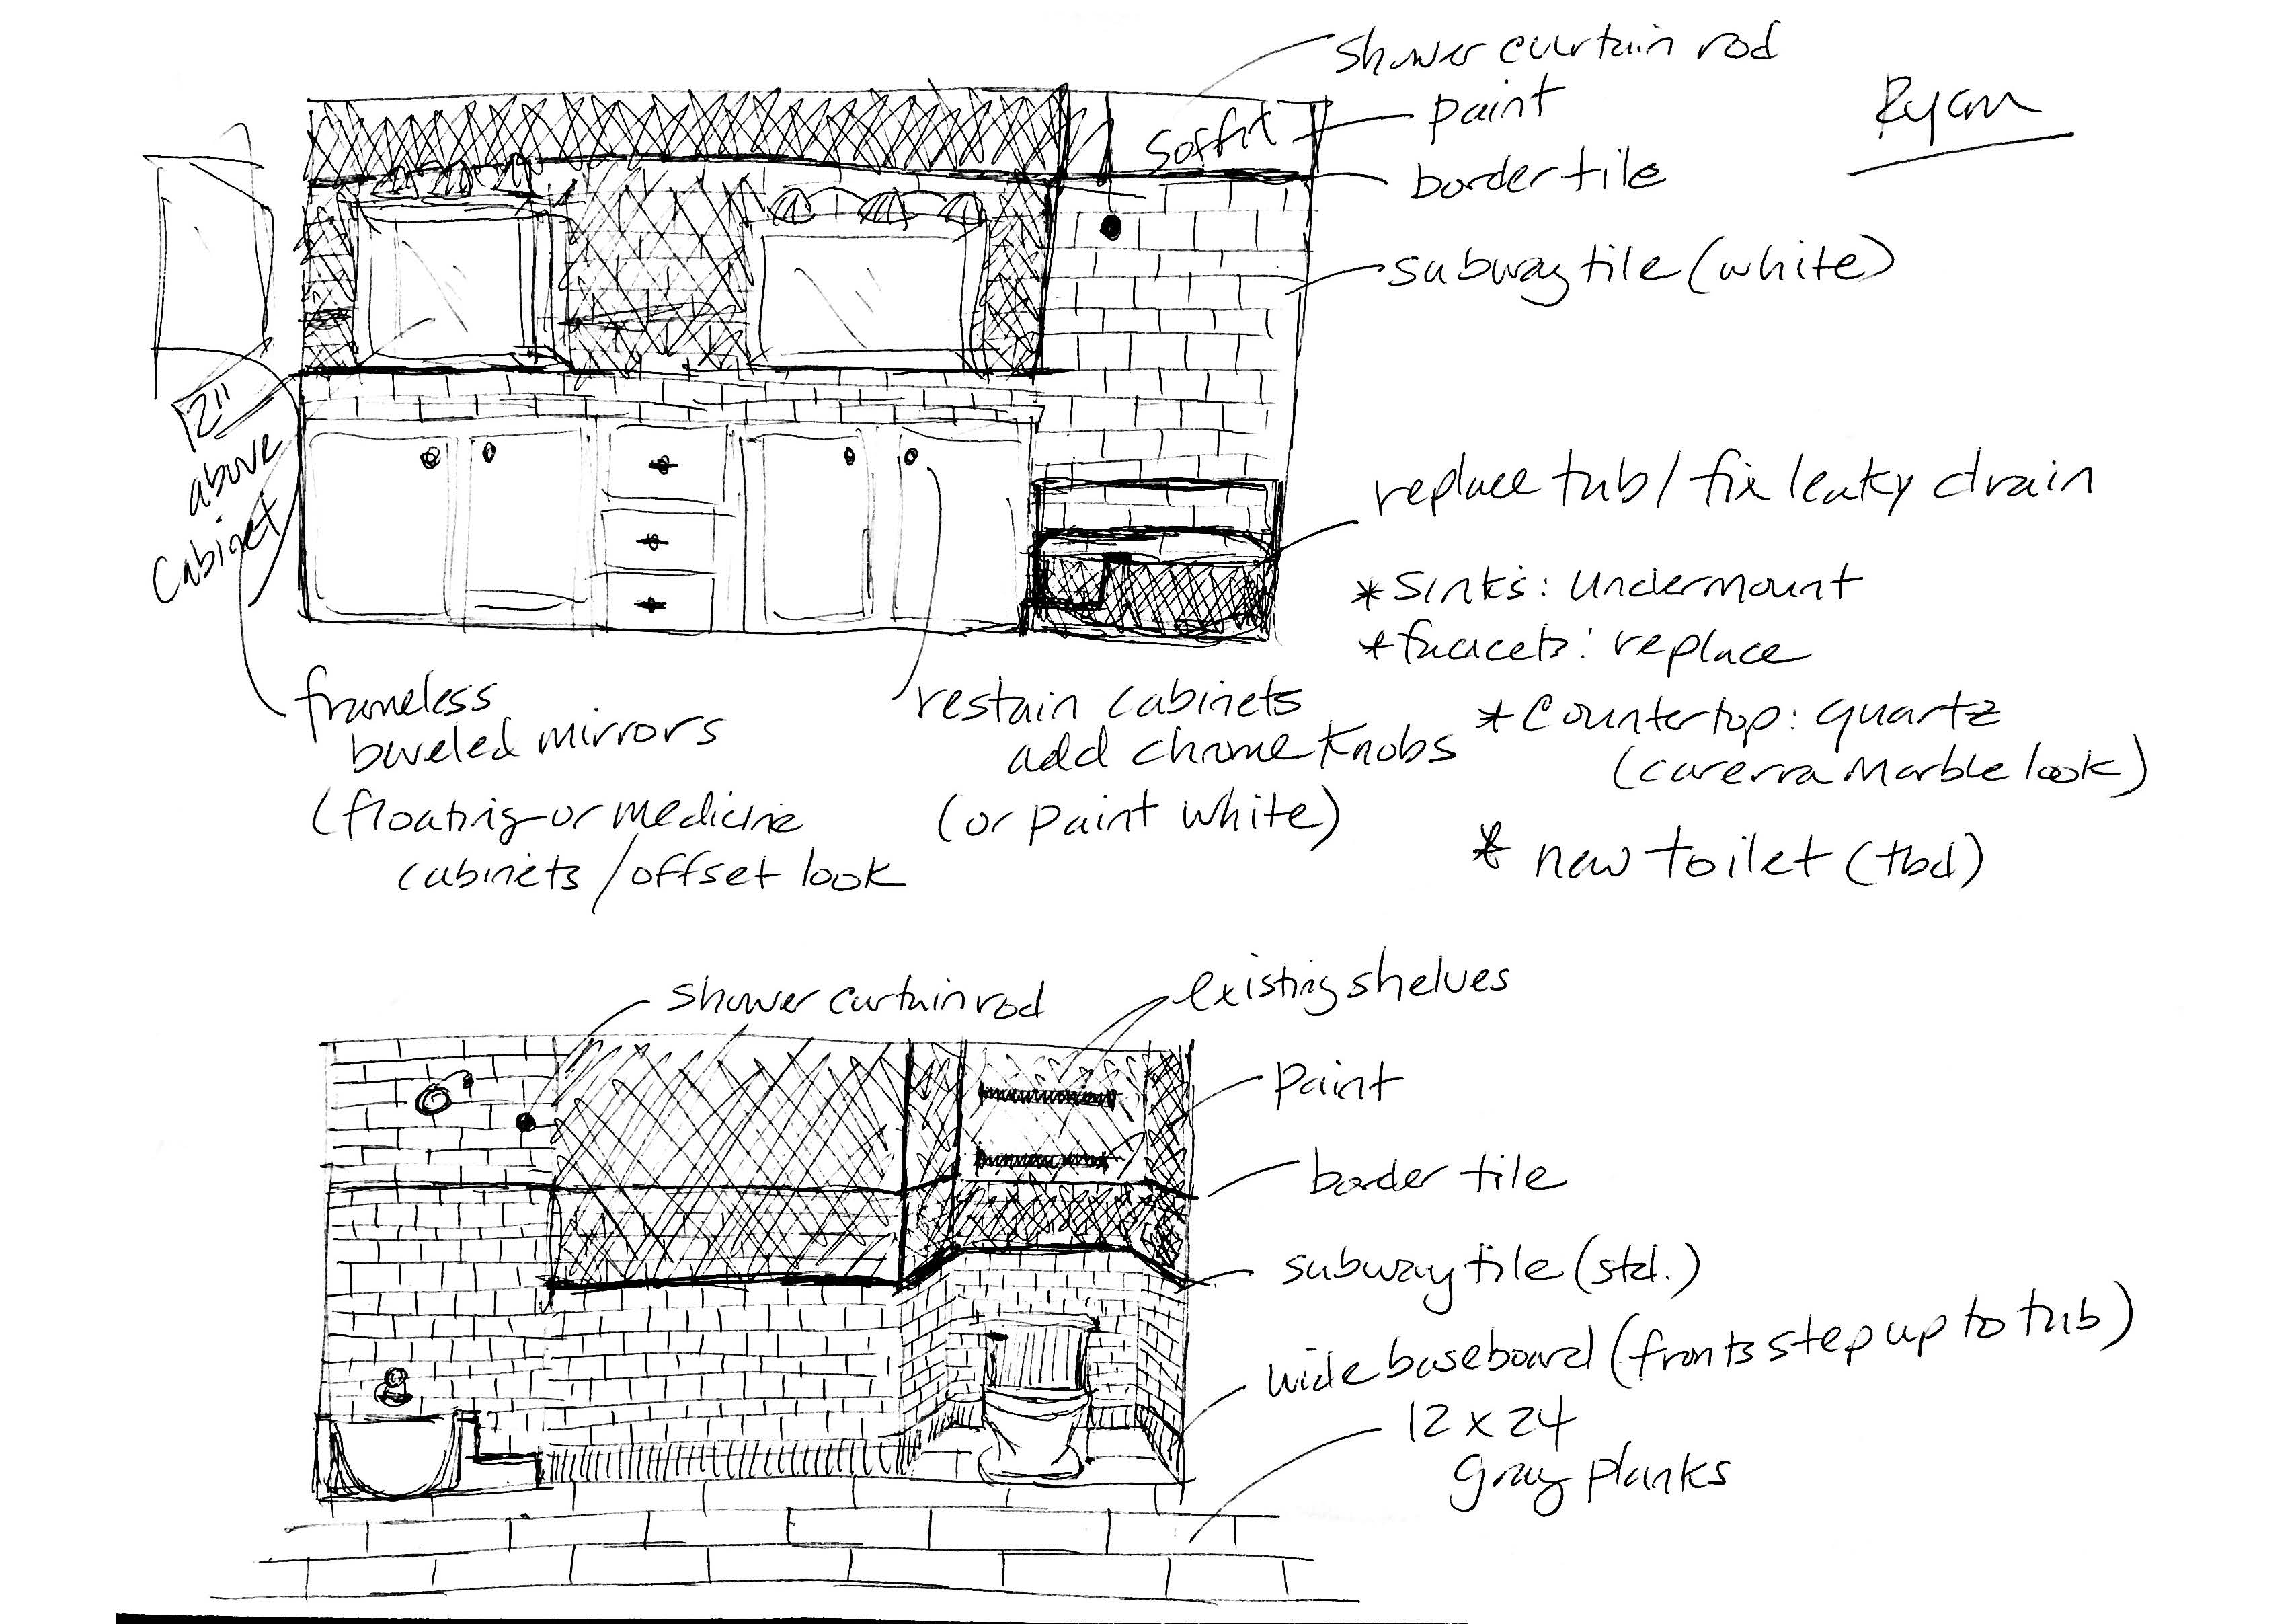 shower curtain rod
paint
Ryan
soffit
border tile
subway tile (white)
12"
above
cabinet
replace tub / fix leaky drain
* Sinks: Undermount
* faucets: replace
* Countertop: quartz
(carerra Marble look)
* new toilet (tbd)
frameless
beveled mirrors
(floating or medicine
cabinets / offset look
restain cabinets
add chrome knobs
(or paint white)
shower curtain rod
existing shelves
paint
border tile
subway tile (std.)
wide baseboard (fronts step up to tub)
12 x 24
gray planks